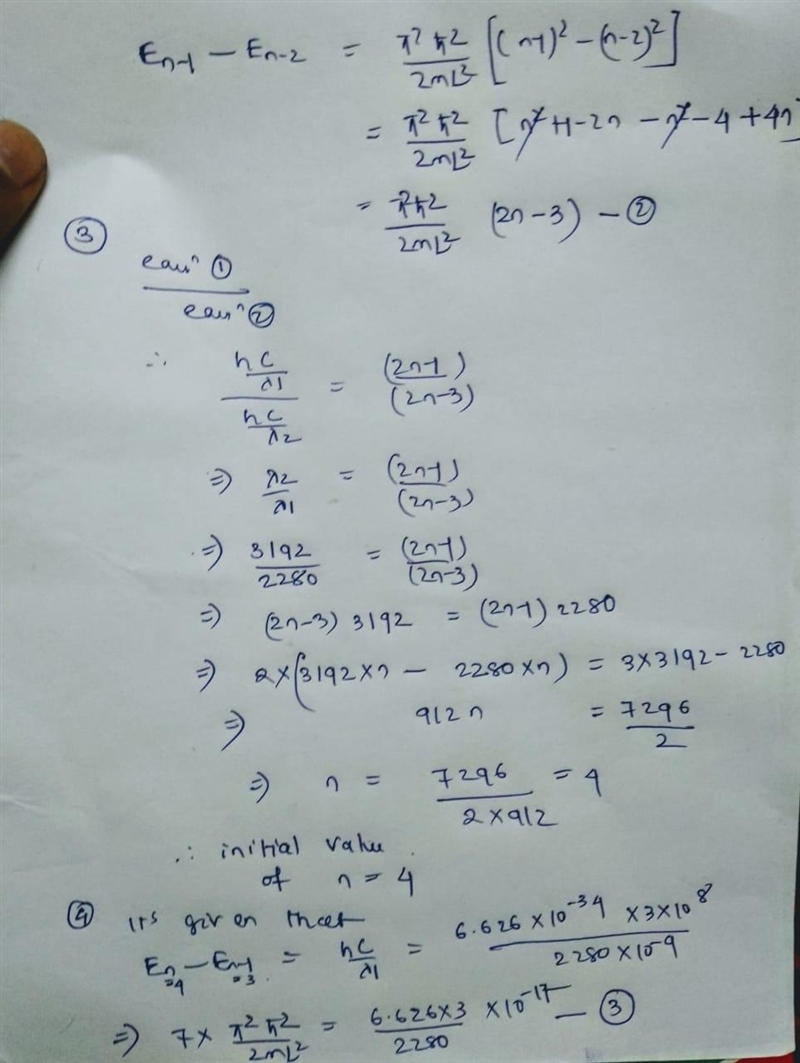 En-1 − En-2 = π²ħ²/2mL² [(n-1)² − (n-2)²]
= π²ħ²/2mL² [n²+1-2n − n²-4+4n]
= π²ħ²/2mL² (2n-3) − ②
③
eqnⁿ ①
eqnⁿ ②
∴ (hc/λ1)/(hc/λ2) = (2n-1)/(2n-3)
⇒ λ2/λ1 = (2n-1)/(2n-3)
⇒ 3192/2280 = (2n-1)/(2n-3)
⇒ (2n-3) 3192 = (2n-1) 2280
⇒ 2×(3192×n − 2280×n) = 3×3192 − 2280
⇒ 912n = 7296/2
⇒ n = 7296/(2×912) = 4
∴ initial value
of n = 4
④ its given that
En=4 − En-1=3 = hc/λ1 = 6.626×10-34 ×3×10⁸/2280×10-9
⇒ 7× π²ħ²/2mL² = 6.626×3/2280 ×10-17 − ③